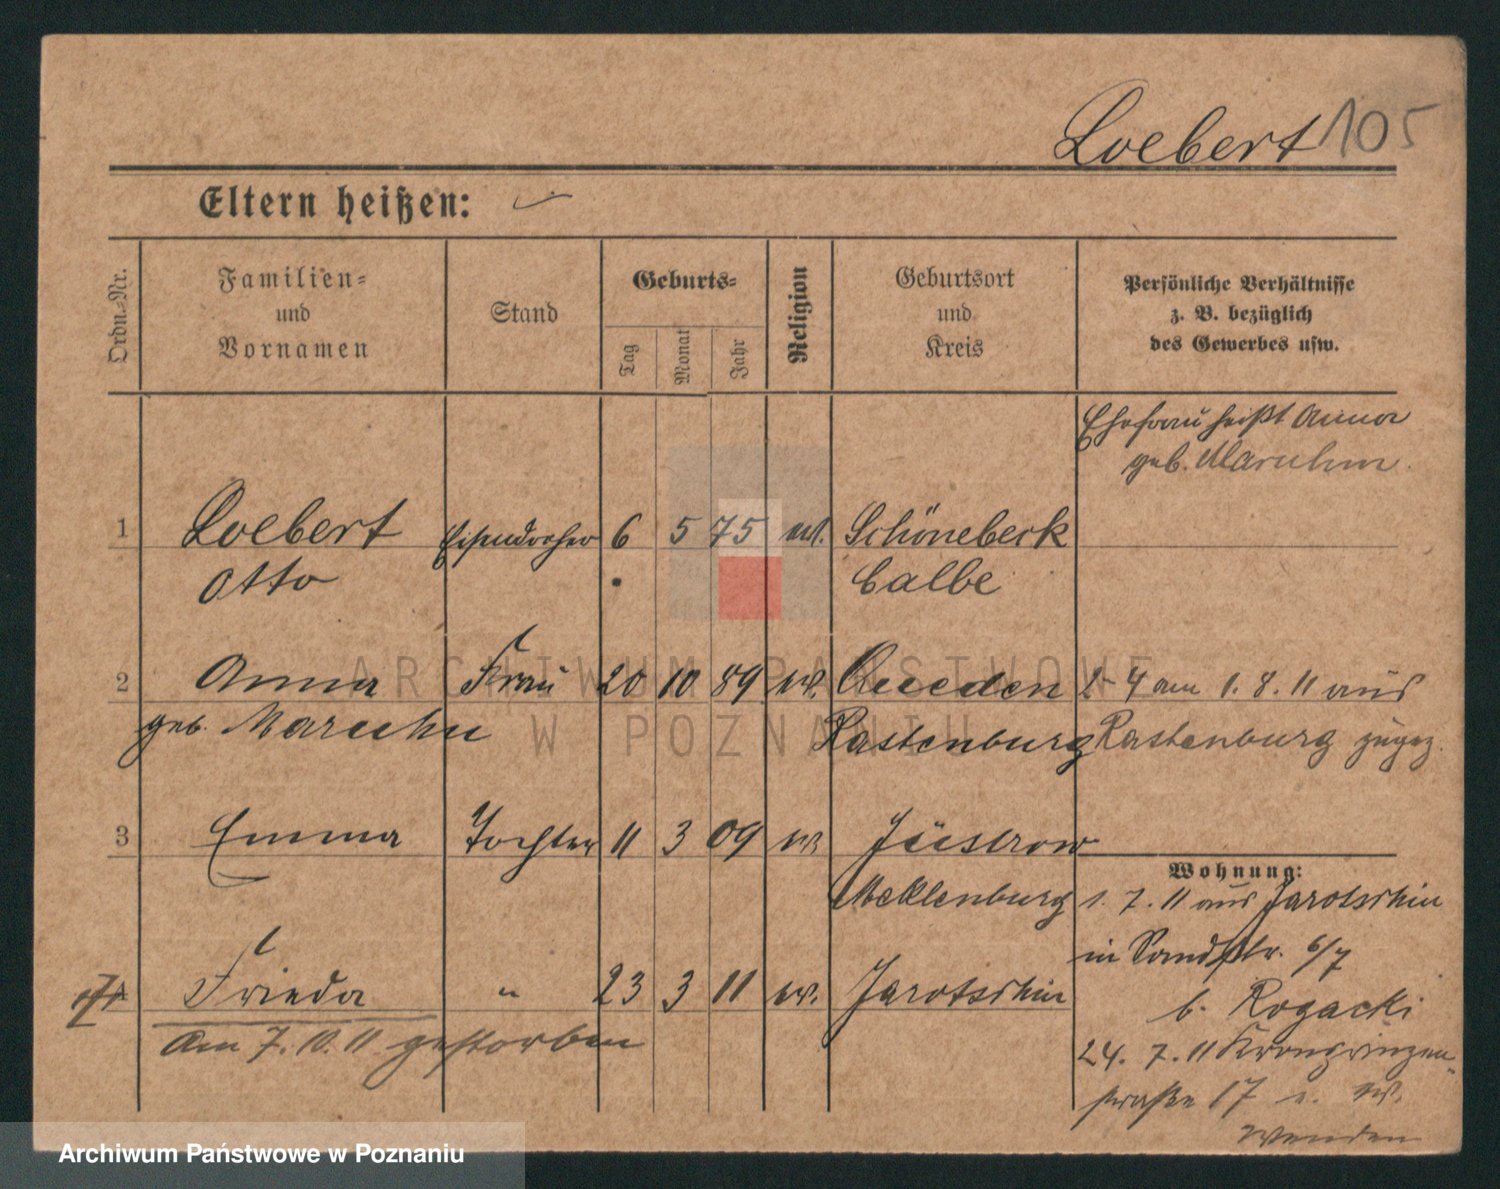 Loebert 105
Eltern heißen:
Ordn.-Nr.
Familien-
und
Vornamen
Stand
Geburts-
Tag
Monat
Jahr
Religion
Geburtsort
und
Kreis
Persönliche Verhältnisse
z. B. bezüglich
des Gewerbes usw.
Ehefrau heißt Anna
geb. Maruhn
1 Loebert Eisendreher 6 5 75 Schönebeck
Otto Calbe
2 Anna Frau 20 10 89 ev.
geb. Maruhn Rastenburg
2-4 am 1.8.11 aus
Rastenburg zugez.
3 Emma Tochter 11 3 09 ev.
Mecklenburg
Wohnung:
1.7.11 aus Jarotschin
in Sandstr. 6/7
b. Rogacki
24.7.11 Kronprinzen-
straße 17
wenden
4 Frieda " 23 3 11 ev. Jarotschin
Am 7.10.11 gestorben
ARCHIWUM PAŃSTWOWE
W POZNANIU
Archiwum Państwowe w Poznaniu